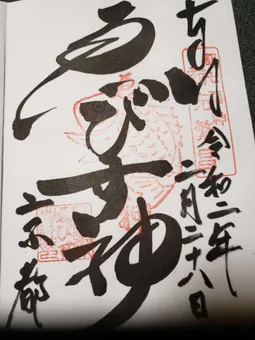 令和二年
二月二十八日
ゑびす神
京都